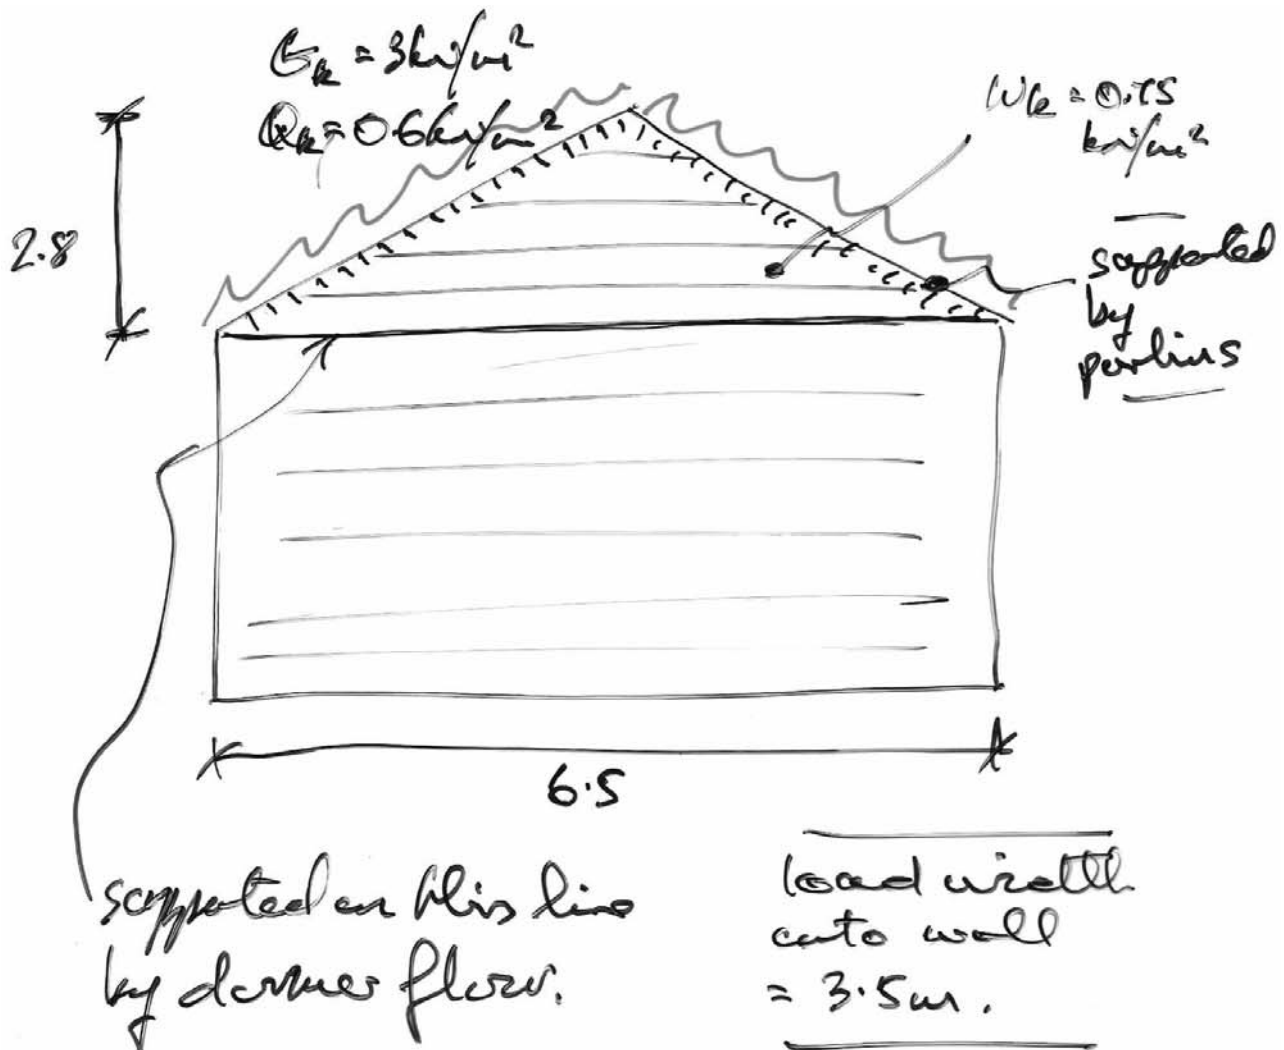 Gk = 3kN/m²
Qk = 0.6kN/m²
Wk = 0.75
kN/m²
2.8
supported
by
purlins
6.5
supported on this line
by dormer floor.
load width
onto wall
= 3.5m.